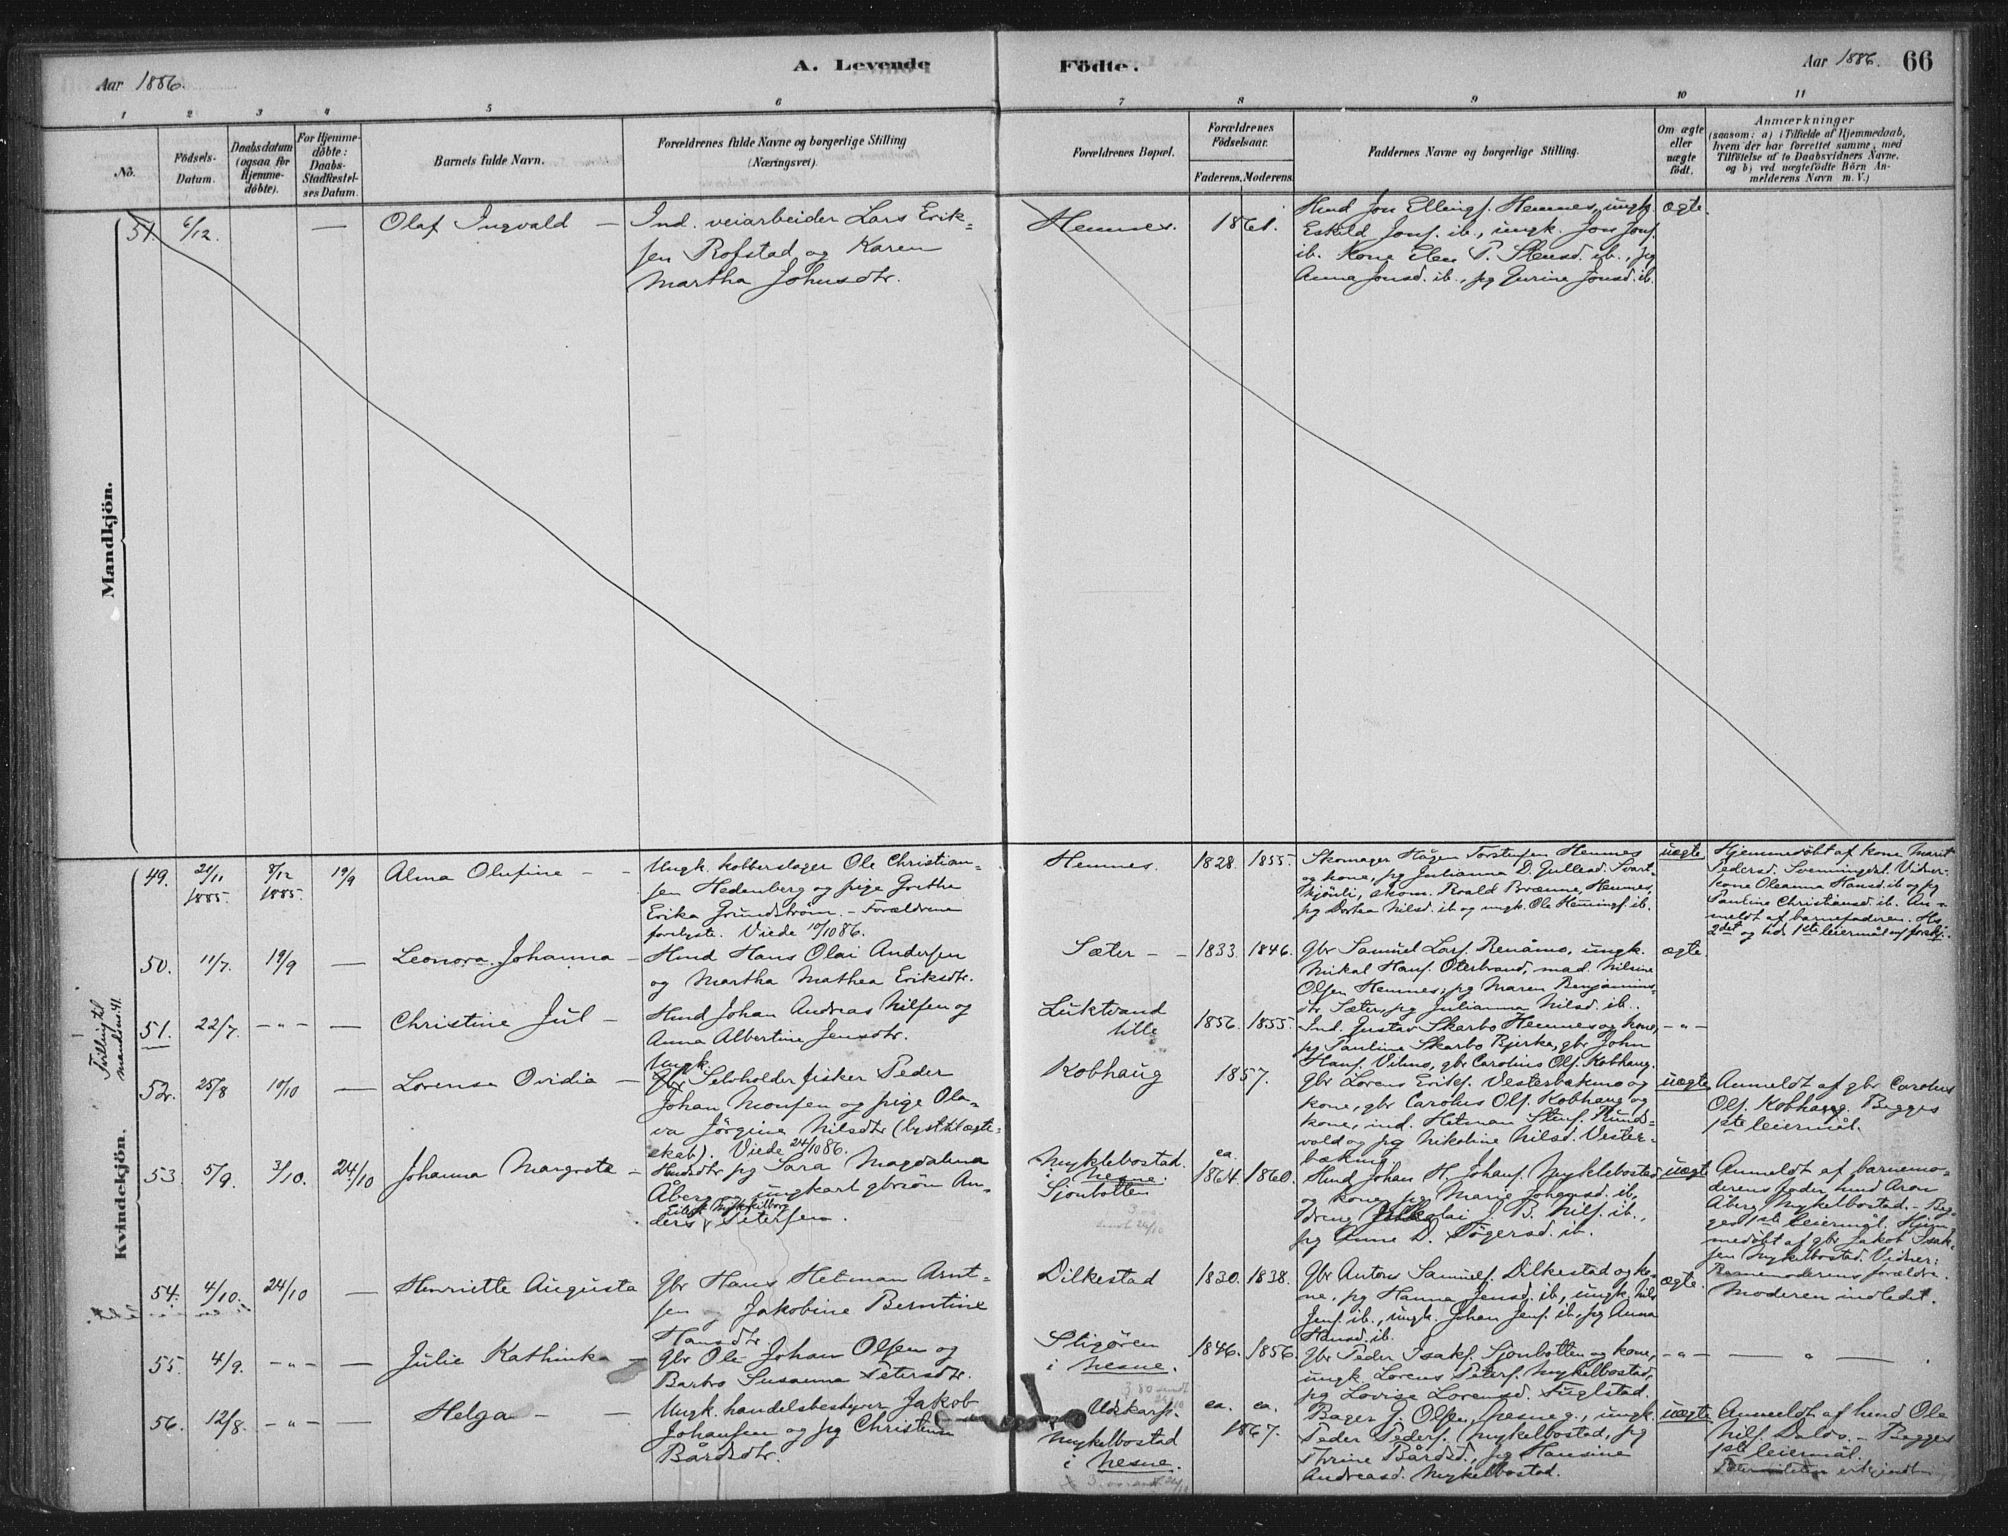 Aar 1886.
A. Levende Födte.
Aar 1886. 66
1 2 3 4 5 6 7 8 9 10 11
No.
Födsels-
Datum.
Daabsdatum
(ogsaa for
Hjemme-
döbte).
For Hjemme-
döbte:
Daabs-
Stadfæstel-
ses Datum.
Barnets fulde Navn.
Forældrenes fulde Navne og borgerlige Stilling
(Næringsvei).
Forældrenes Bopæl.
Forældrenes
Födselsaar.
Faderens. Moderens.
Faddernes Navne og borgerlige Stilling.
Om ægte
eller
uægte
födt.
Anmærkninger
(saasom: a) i Tilfælde af Hjemmedaab,
hvem der har forrettet samme, med
Tilföielse af to Daabsvidners Navne.
og b) ved uægtefödte Börn An-
melderens Navn m. V.)
Mandkjön.
51. 6/12. — Olaf Ingvald —
Ind. veiarbeider Lars Erik-
sen Rofstad og Karen
Martha Johnsdtr.
Hemnes. 1861.
Hmd Jon Ellings. Hemnes, ungk.
Eskild Jons. ib., ungk. Jon Jons.
ib. Kone Elen P. Stensd. ib., pg
Anna Jonsd. ib., pg Jurine Jonsd. ib.
ægte.
Kvindekjön.
Tvilling til
mandkjøn 41.
49. 21/11 1885. 8/12 1885. 19/9 Alma Olufine - -
Ungk. kobberslager Ole Christian-
sen Hedenberg og pige Grethe
Erika Grundstrøm. - Forældrene
forlovte. Viede 10/10 86.
Hemnes. 1828. 1855.
Skomager Hågen Torstensen Hemnes
og kone, pg Julianna D. Gullesd. Svart-
skjönli, skom. Roald Brænne, Hemnes,
pg Dortea Nilsd. ib og ungk. Ole Hemings. ib.
uægte
Hjemmedöbt af kone Marit
Pedersd. Svenningdal. Vidner:
kone Oleanna Hansd. ib og pg
Pauline Christiansd. ib. An-
meldt af barnefaderen. Hs
2det og hd. 1ste leiermål
50. 11/7. 19/9 — Leonora Johanna -
Hmd Hans Olai Andersen
og Martha Mathea Eriksdtr.
Sæter - - 1833. 1846.
Gbr Samuel Lars. Renåmo, ungk.
Mikal Hans. Oterbrand, mad. Nilsine
Olsen Hemnes, pg Maren Benjamins-
dtr Sæter, pg Julianna Nilsd. ib.
ægte.
51. 22/7. - " - — Christine Jul -
Hmd Johan Andreas Nilsen og
Anna Albertine Jensdtr.
Luktvand
lille 1856. 1855.
Ind. Gustav Skarbo Hemnes og kone,
pg Pauline Skarbo Bjerka, gbr John
Hans. Vilmo, gbr Carolius Ols. Kobhaug.
- " -
52. 25/8 10/10 — Lorense Ovidia -
Ungk.
Selvholder fisker Peder
Johan Monsen og pige Ola-
va Jörgine Nilsdtr (lyst t. ægte-
skab). Viede 24/10 86.
Kobhaug 1857.
Gbr Lorens Eriks. Vesterbækmo og
kone, gbr Carolus Ols. Kobhaug og
kone, ind. Hetman Stens. Rund-
vold og pg Nikoline Nilsd. Vester-
bækmo.
uægte
Anmeldt af gbr Carolus
Ols. Kobhaug. Begges
1ste leiermål.
53. 5/9. 3/10. 24/10 Johanna Margrete -
Husdtr pg Sara Magdalena
Åberg og ungkarl gbrsön An-
ders Petersen.
Myklebostad.
i Nesne.
Sjonbotten
ca.
1864. 1860.
Hmd Johan H. Johans. Myklebostad
og kone, pg Marie Johansd. ib,
Dreng Nikolai J. B. Nils. ib.,
pg Anne D. Tögersd. ib.
uægte
Anmeldt af barnemo-
derens fader hmd Aron
Åberg, Myklebostad. - Beg-
ges 1ste leiermål. Hjem-
medöbt af gbr Jakob Isak-
sen Myklebostad. Vidner:
Barnemoderens forældre.
Moderen indledet.
54. 4/10. 24/10 — Henriette Augusta
Gbr Hans Hetman Arnt-
sen og Jakobine Berntine
Hansdtr.
Dilkestad 1830. 1838.
Gbr Antons Samuels. Dilkestad og ko-
ne, pg Hanna Jensd. ib, ungk. Nils
Jens. ib., ungk. Johan Jens. ib, pg Anna
Hansd. ib.
ægte.
55. 4/9. - " - — Julie Kathinka -
Gbr Ole Johan Olsen og
Barbro Susanna Petersdtr.
Stigören
i Nesne. 1846. 1856.
Gbr Peder Isaks. Sjonbotten og kone,
ungk. Lorens Peters. Myklebostad,
pg Lovise Lorensd. Fuglstad.
- " - — " —
56. 12/8. - " - — Helga - -
Ungk. handelsbestyrer Jakob
Johansen og pg Christense
Bårdsdtr.
Utskarp.
Mykelbostad
i Nesne. ca. ca.
1867.
Bager J. Olsen, Nesne g., ungk.
Peder Peders. Mykelbostad, pg
Thrine Bårdsd., pg Hansine
Andreasd. Mykelbostad.
uægte
Anmeldt af hmd Ole
Nils. Dalos. - Begges
1ste leiermål.